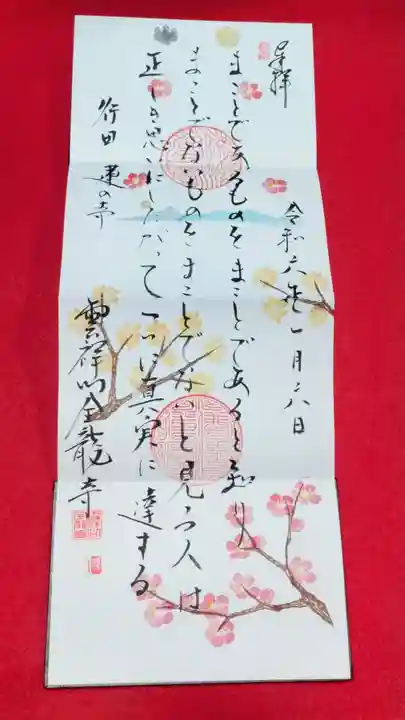 奉拝
令和六年一月六日
まことであるものをまことであると知り
まことでないものをまことでないと見る人は
正しき思いにしたがって ついに真実に達する
行田 蓮の寺
雲祥山金龍寺